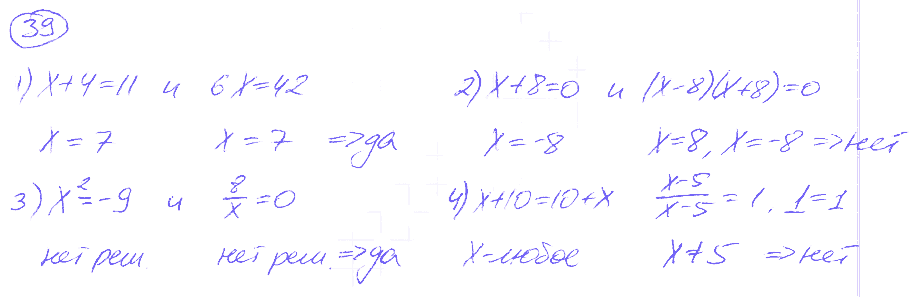 39
1) x+4=11 и 6x=42
x=7 x=7 =>да
2) x+8=0 и (x-8)(x+8)=0
x=-8 x=8, x=-8 =>нет
3) x²=-9 и 8/x=0
нет реш. нет реш. =>да
4) x+10=10+x (x-5)/(x-5)=1, 1=1
x-любое x≠5 =>нет